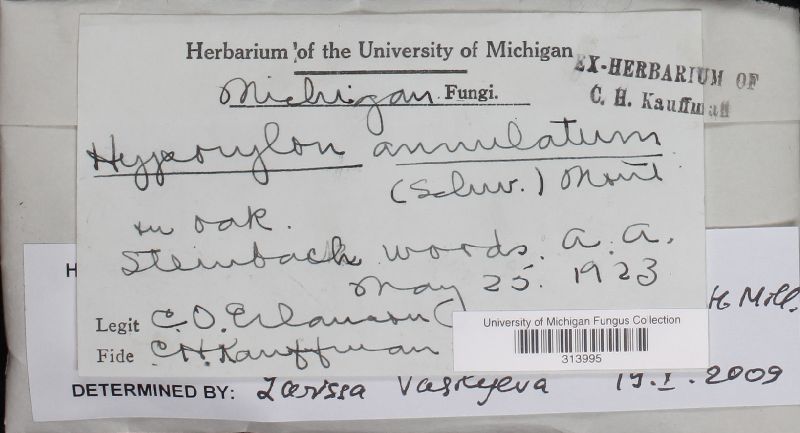 Herbarium of the University of Michigan
EX-HERBARIUM OF
C. H. Kauffman
Michigan Fungi.
Hypoxylon annulatum
(Schw.) Mont
on oak.
Steinbach woods. A. A.
May 25. 1923
Legit C. O. Erlanson
Fide C H. Kauffman
University of Michigan Fungus Collection
313995
H
Mill.
DETERMINED BY: Larissa Vasilyeva 19. I. 2009